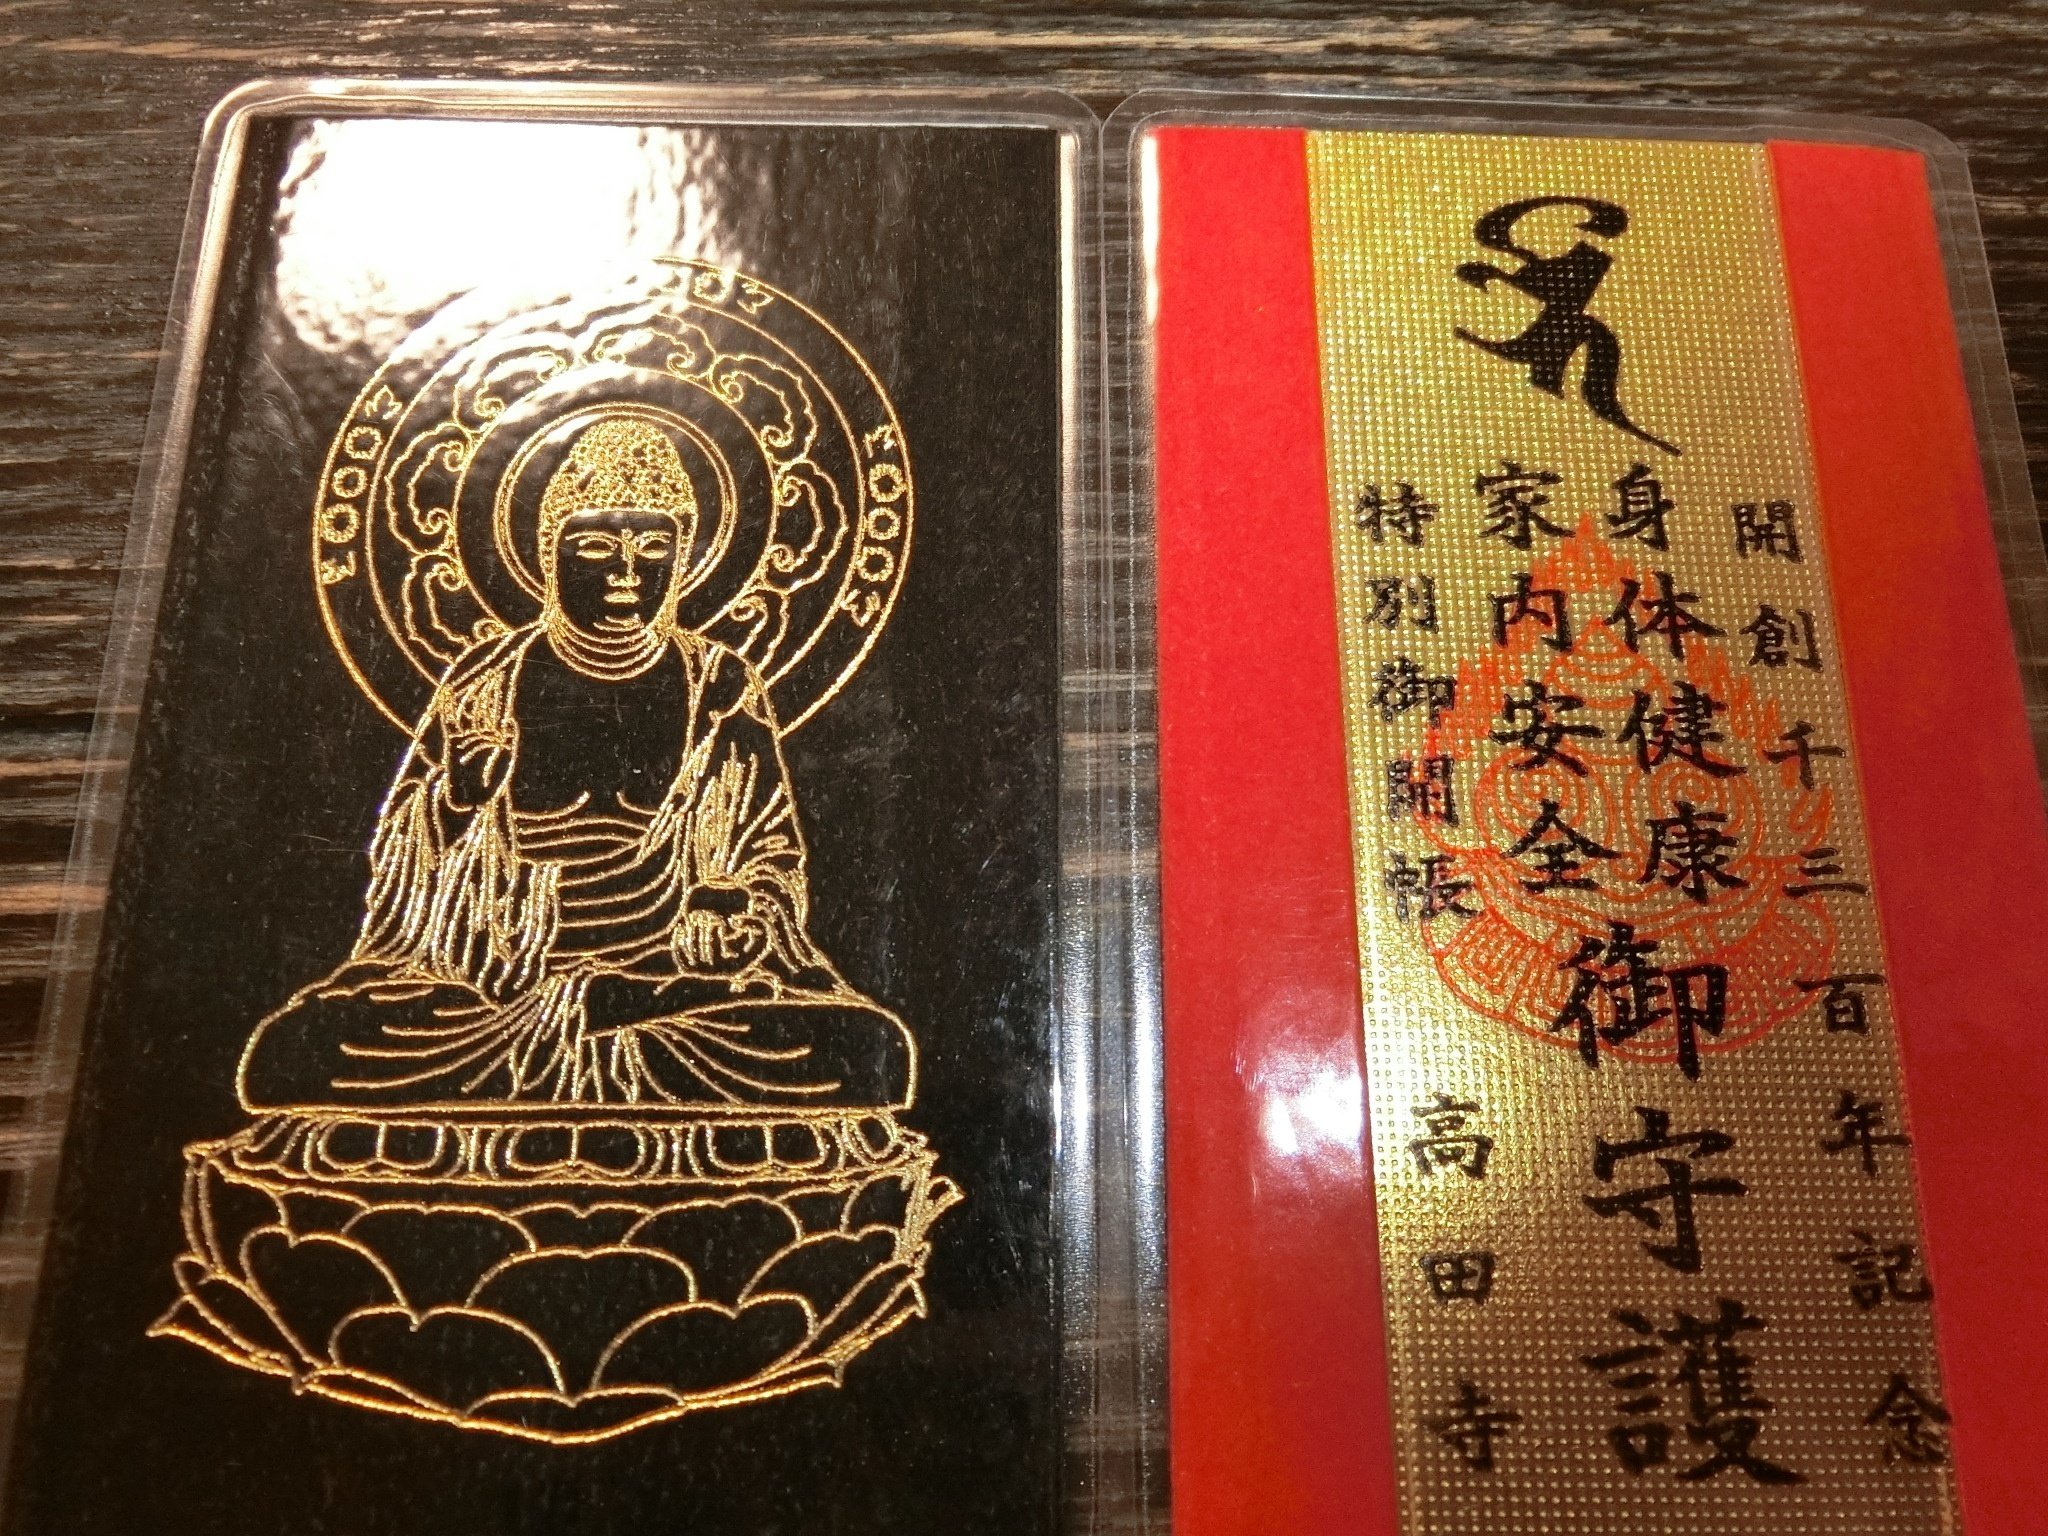 開創千三百年記念
身体健康
家内安全
御守護
特別御開帳
高田寺